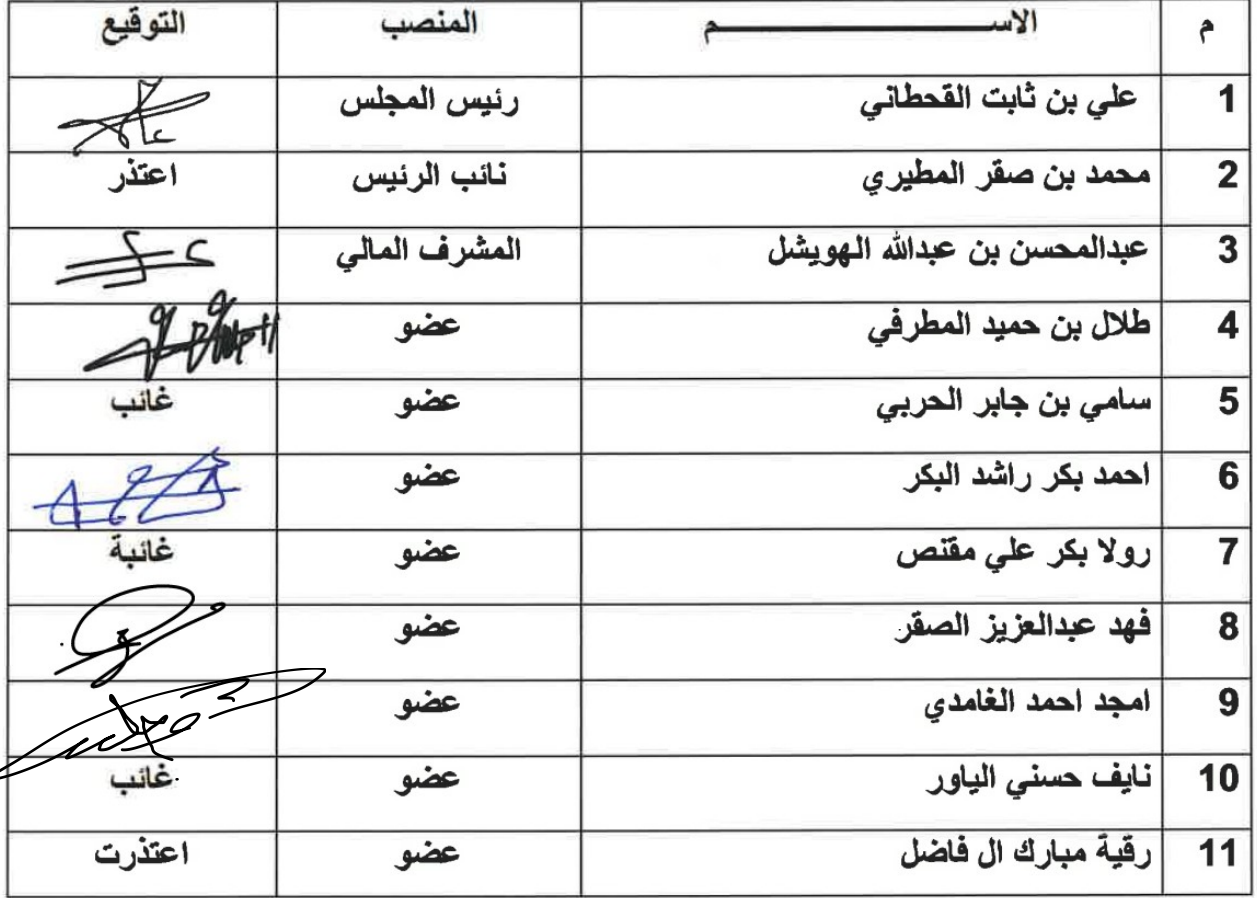 م الاســـــــــــــم المنصب التوقيع
1 علي بن ثابت القحطاني رئيس المجلس
2 محمد بن صقر المطيري نائب الرئيس اعتذر
3 عبدالمحسن بن عبدالله الهويشل المشرف المالي
4 طلال بن حميد المطرفي عضو
5 سامي بن جابر الحربي عضو غائب
6 احمد بكر راشد البكر عضو
7 رولا بكر علي مقتص عضو غائبة
8 فهد عبدالعزيز الصقر عضو
9 امجد احمد الغامدي عضو
10 نايف حسني الياور عضو غائب
11 رقية مبارك ال فاضل عضو اعتذرت